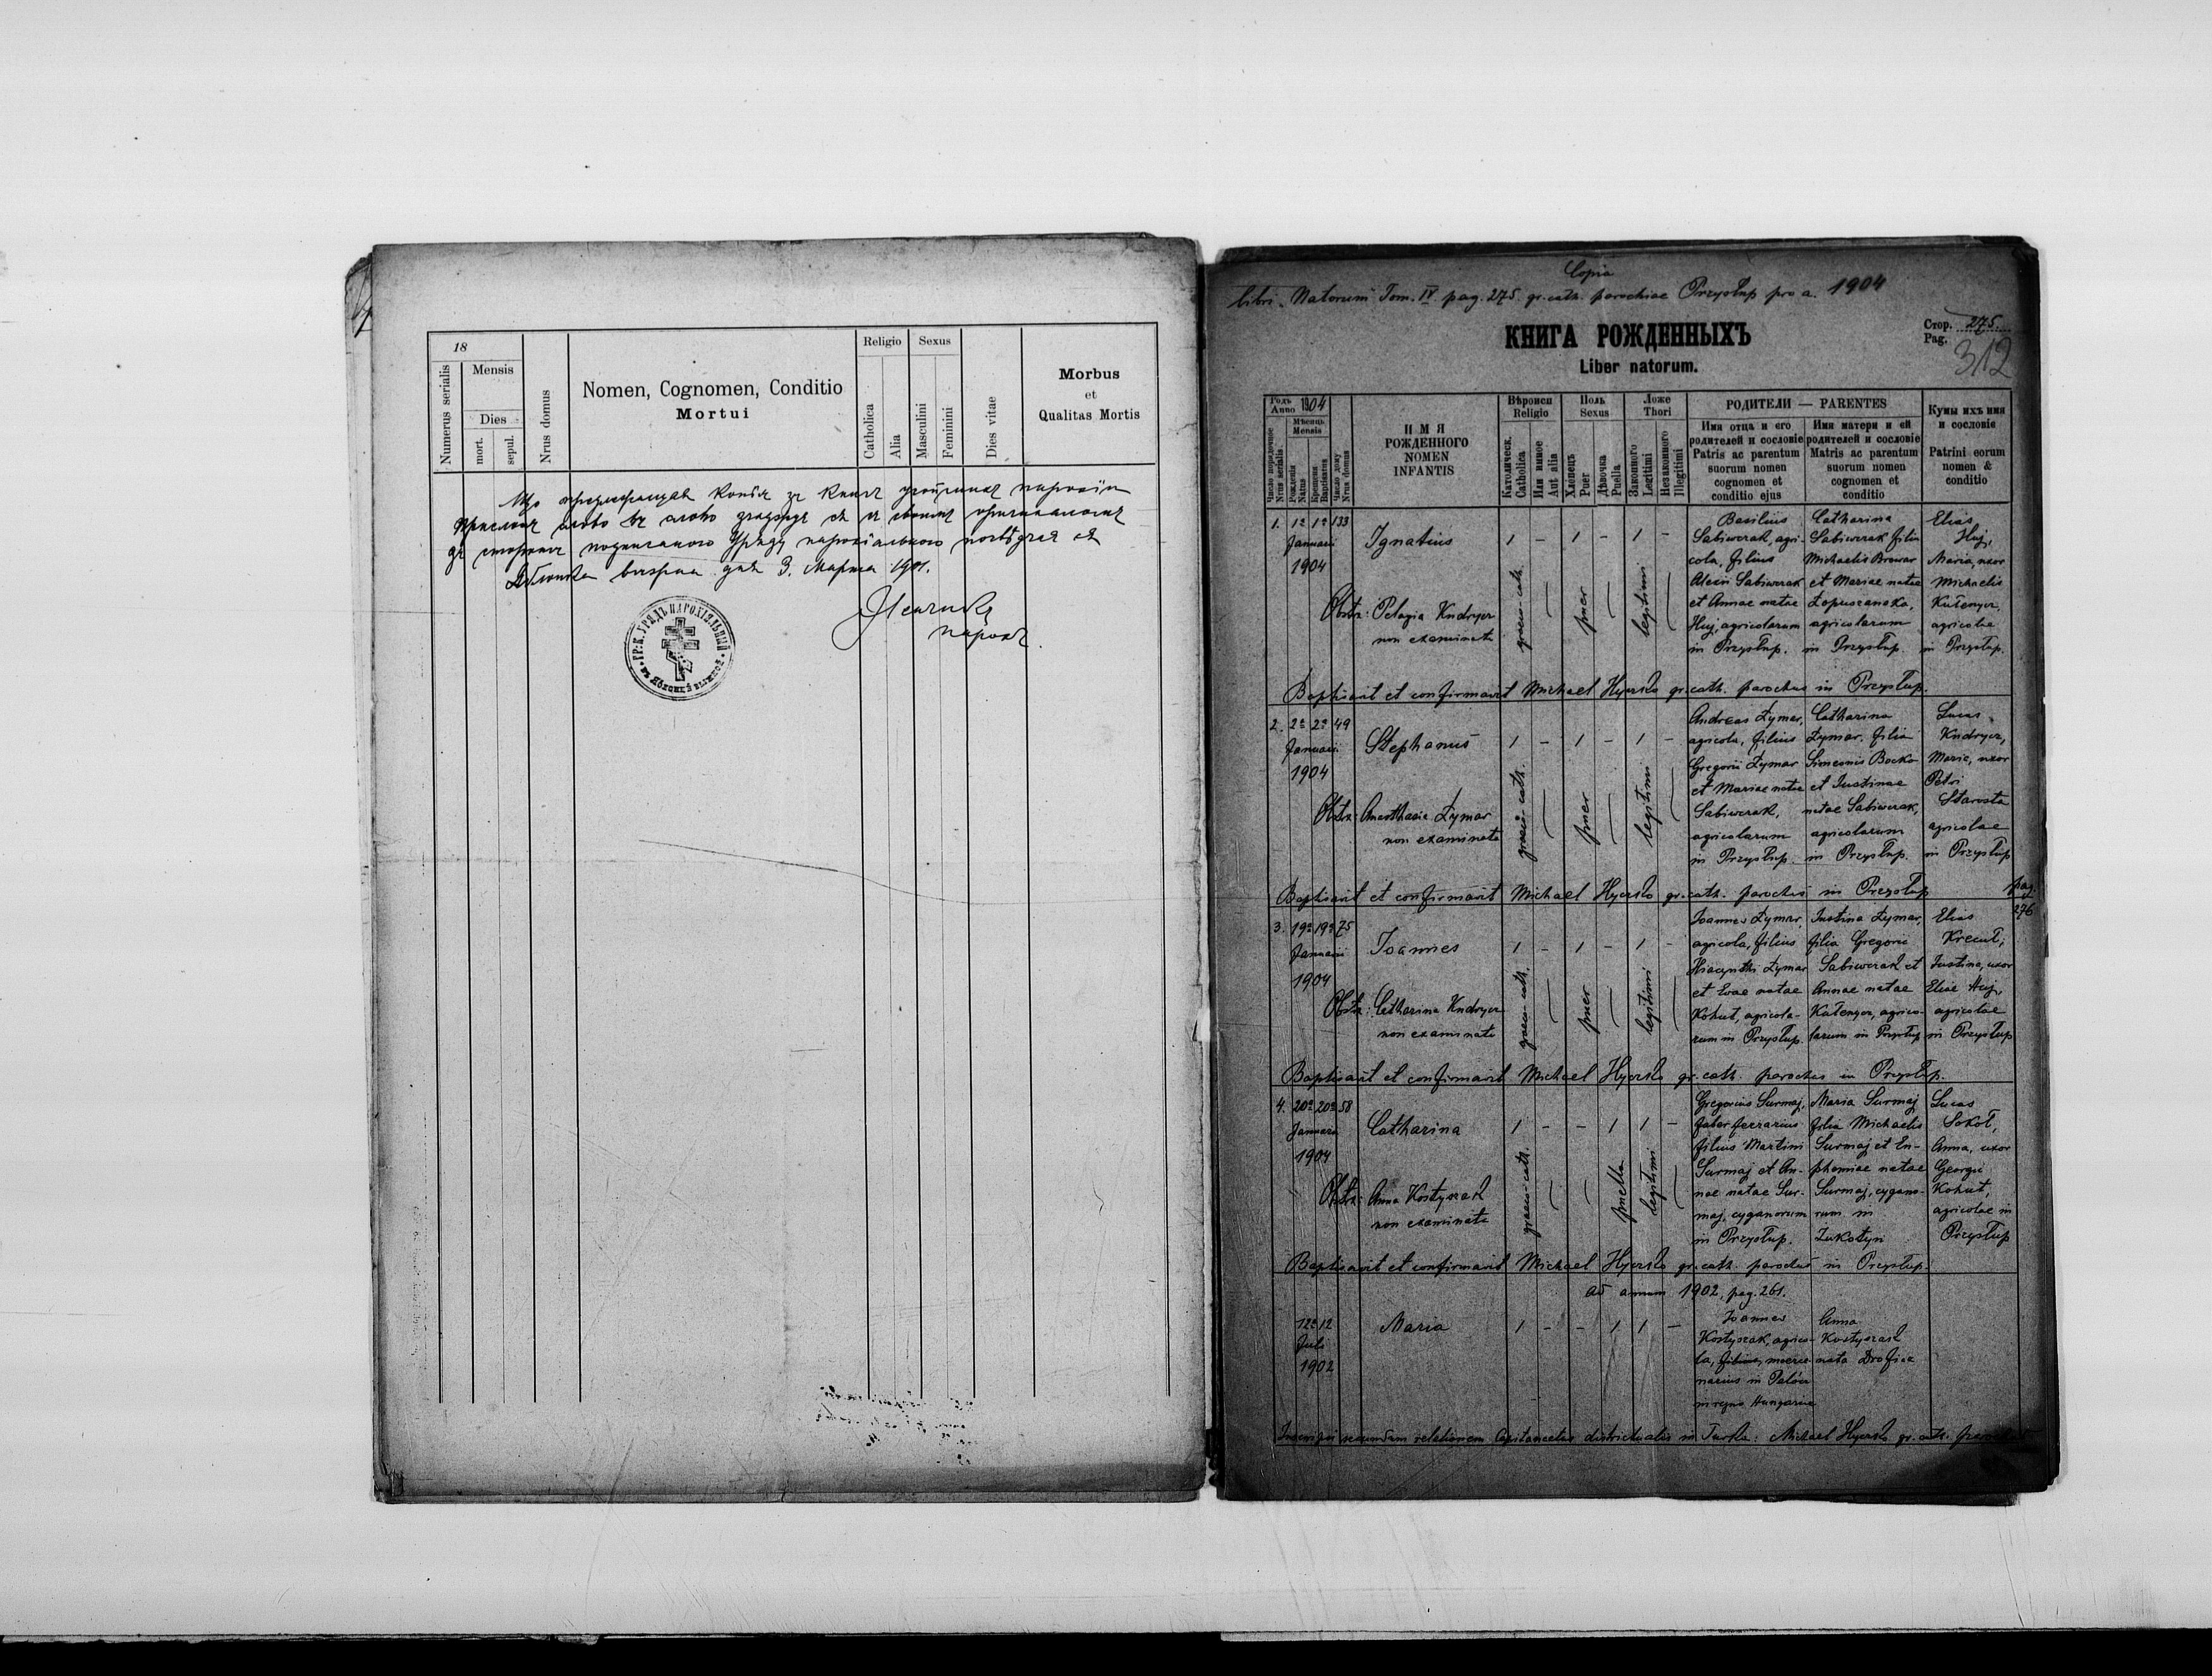 18
Numerus serialis
Mensis
Dies
mort.
sepul.
Nrus domus
Nomen, Cognomen, Conditio
Mortui
Religio
Catholica
Alia
Sexus
Masculini
Feminini
Dies vitae
Morbus
et
Qualitas Mortis
слово въ слово
дня 3. Марта 1901.
парохъ.
ГР. К. УРЯДЪ ПАРОХІЯЛЬНЫЙ
Copia
libri Natorum Tom. IV pag. 275 gr. cath. parochiae Przysłup pro a. 1904
КНИГА РОЖДЕННЫХЪ
Liber natorum.
Стор. 275.
Pag.
312
Годъ 1904
Anno
Число порядковое
Nrus serialis
Мѣсяць
Mensis
Рожденія
Natus
Крещенія
Baptisatus
Число дому
Nrus domus
ИМЯ
РОЖДЕННОГО
NOMEN
INFANTIS
Вѣроисп
Religio
Католическ.
Catholica
Или инное
Aut alia
Поль
Sexus
Хлопець
Puer
Дѣвочка
Puella
Ложе
Thori
Законного
Legitimi
Незаконного
Illegitimi
РОДИТЕЛИ — PARENTES
Имя отца и его
родителей и сословіе
Patris ac parentum
suorum nomen
cognomen et
conditio ejus
Имя матери и ей
родителей и сословіе
Matris ac parentum
suorum nomen
cognomen et
conditio
Кумы ихъ имя
и сословіе
Patrini eorum
nomen &
conditio
1. 1a 1a 133
Januarii
1904
Ignatius
1 – 1 – 1 –
graeco-cath.
puer
legitimi
Obstr: Pelagia Kndryer
non examinata
Basilius
Sabiwerak, agri-
cola, filius
Alexii Sabiwerak
et Annae natae
Huj, agricolarum
in Przysłup.
Catharina
Sabiwerak filia
Michaelis Browar
et Mariae natae
Łopuszanska,
agricolarum
in Przysłup.
Elias
Huj,
Maria, uxor
Michaelis
Kutenyer,
agricolae
in Przysłup.
Baptisavit et confirmavit Michael Hyersko gr. cath. parochus in Przysłup.
2. 2a 2a 49
Januarii
1904
Stephanus
1 – 1 – 1 –
graeco-cath.
puer
legitimi
Obstr: Anasthasia Zymar
non examinata
Andreas Zymar,
agricola, filius
Gregorii Zymar
et Mariae natae
Sabiwerak,
agricolarum
in Przysłup.
Catharina
Zymar, filia
Simeonis Bocko
et Justinae
natae Sabiwerak,
agricolarum
in Przysłup.
Lucas
Kndryer,
Maria, uxor
Petri
Starosta
agricolae
in Przysłup
Baptisavit et confirmavit Michael Hyersko gr. cath. parochus in Przysłup
pag.
276
3. 19a 19a 75
Januarii
1904
Joannes
1 – 1 – 1 –
graeco-cath.
puer
legitimi
Obstr: Catharina Kndryer
non examinata
Joannes Zymar,
agricola, filius
Hiacynthi Zymar
et Evae natae
Kohut, agricola-
rum in Przysłup.
Justina Zymar,
filia Gregorii
Sabiwerak et
Annae natae
Kutenyer, agrico-
larum in Przysłup
Elias
Krecul,
Justina, uxor
Eliae Huj,
agricolae
in Przysłup
Baptisavit et confirmavit Michael Hyersko gr. cath. parochus in Przysłup.
4. 20a 20a 58
Januarii
1904
Catharina
1 – – 1 1 –
graeco-cath.
puella
legitimi
Obstr: Anna Kostyszak
non examinata
Gregorius Surmaj,
faber ferrarius
filius Martini
Surmaj et An-
nae natae Sur-
maj, cyganorum
in Przysłup.
Maria Surmaj
filia Michaelis
Surmaj et Eu-
phemiae natae
Surmaj, cygano-
rum in
Zukotyn
Lucas
Sokol,
Anna, uxor
Georgii
Kohut,
agricolae in
Przysłup
Baptisavit et confirmavit Michael Hyersko gr. cath. parochus in Przysłup.
ad annum 1902, pag. 261.
12a 12
Juli
1902
Maria
1 – – 1 1 –
Joannes
Kostyszak, agrico-
la, filius, merce-
narius in
in regno Hungariae
Anna
Kostyszak
nata
Inscripsi secundum relationem Capitaneatus districtualis in Turka: Michael Hyersko gr. cath. parochus